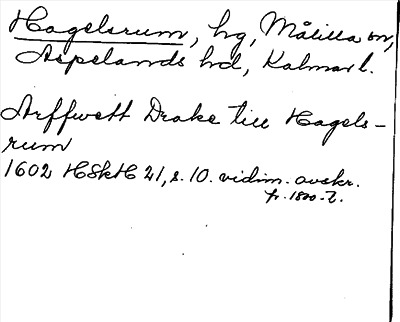 Hagelsrum, hg, Målilla sn,
Aspelands hd, Kalmar l.
Arffwett Drake till Hagels-
rum
1602 HSkH 21, s. 10. vidim. avskr.
fr. 1800-t.